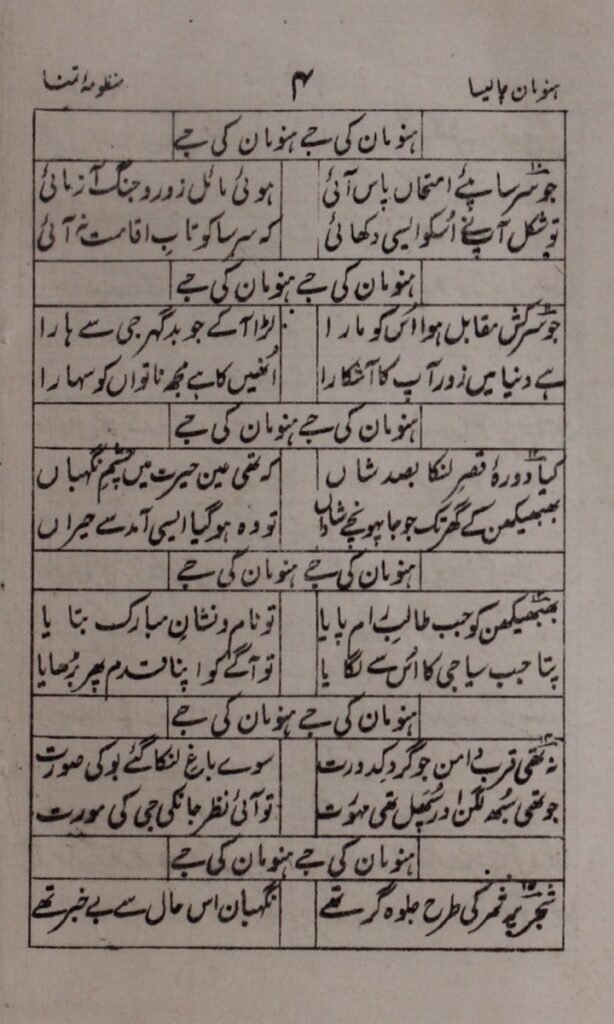 ہنومان چالیسا ۴ منظومہ اتنا
ہنومان کی جے ہنومان کی جے
۱۰ جو سرسا پئے امتحاں پاس آئی ہوئی مائل زور و جنگ آزمائی
تو شکل آپ نے اسکو ایسی دکھائی کہ سرسا کو تاب اقامت نہ آئی
ہنومان کی جے ہنومان کی جے
۱۱ جو سرکش مقابل ہوا اُس کو مارا لڑا آکے جو بدگہر جی سے ہارا
ہے دنیا میں زور آپ کا آشکارا اُنھیں کا ہے مجھ ناتواں کو سہارا
ہنومان کی جے ہنومان کی جے
۱۲ کیا دورۂ قصرِ لنکا بصد شاں کہ تھی عین حیرت میں چشمِ نگہباں
بھبھیکھن کے گھر تک جو جا پہونچے شاداں تو وہ ہو گیا ایسی آمد سے حیراں
ہنومان کی جے ہنومان کی جے
۱۳ بھبھیکھن کو جب طالبِ رام پایا تو نام و نشانِ مبارک بتایا
پتا جب سیا جی کا اُس سے لگایا تو آگے کو اپنا قدم پھر بڑھایا
ہنومان کی جے ہنومان کی جے
۱۴ نہ تھی قربِ دامن جو گردِ کدورت سوے باغ لنکا گئے بو کی صورت
جو تھی سُبھ لگن اور سُپھل تھی مہُوت تو آئی نظر جانکی جی کی مورت
ہنومان کی جے ہنومان کی جے
۱۵ شجر پر قمر کی طرح جلوہ گر تھے نگہبان اس حال سے بے خبر تھے